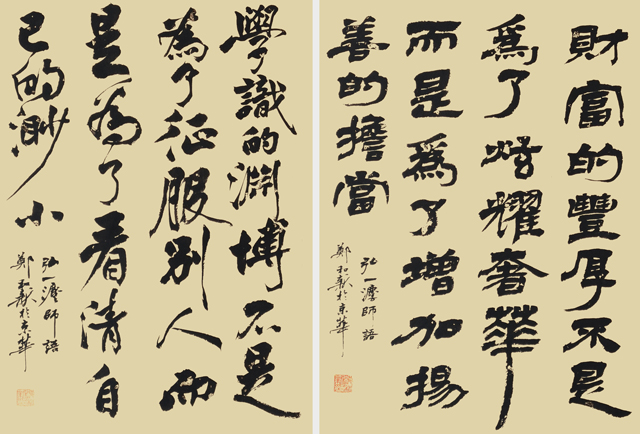 財富的豐厚不是
爲了炫耀奢華
而是爲了增加揚
善的擔當
弘一灋師語
鄭和於京華
學識的淵博不是
為了征服別人而
是為了看清自
己的渺小
弘一灋師語
鄭和於京華